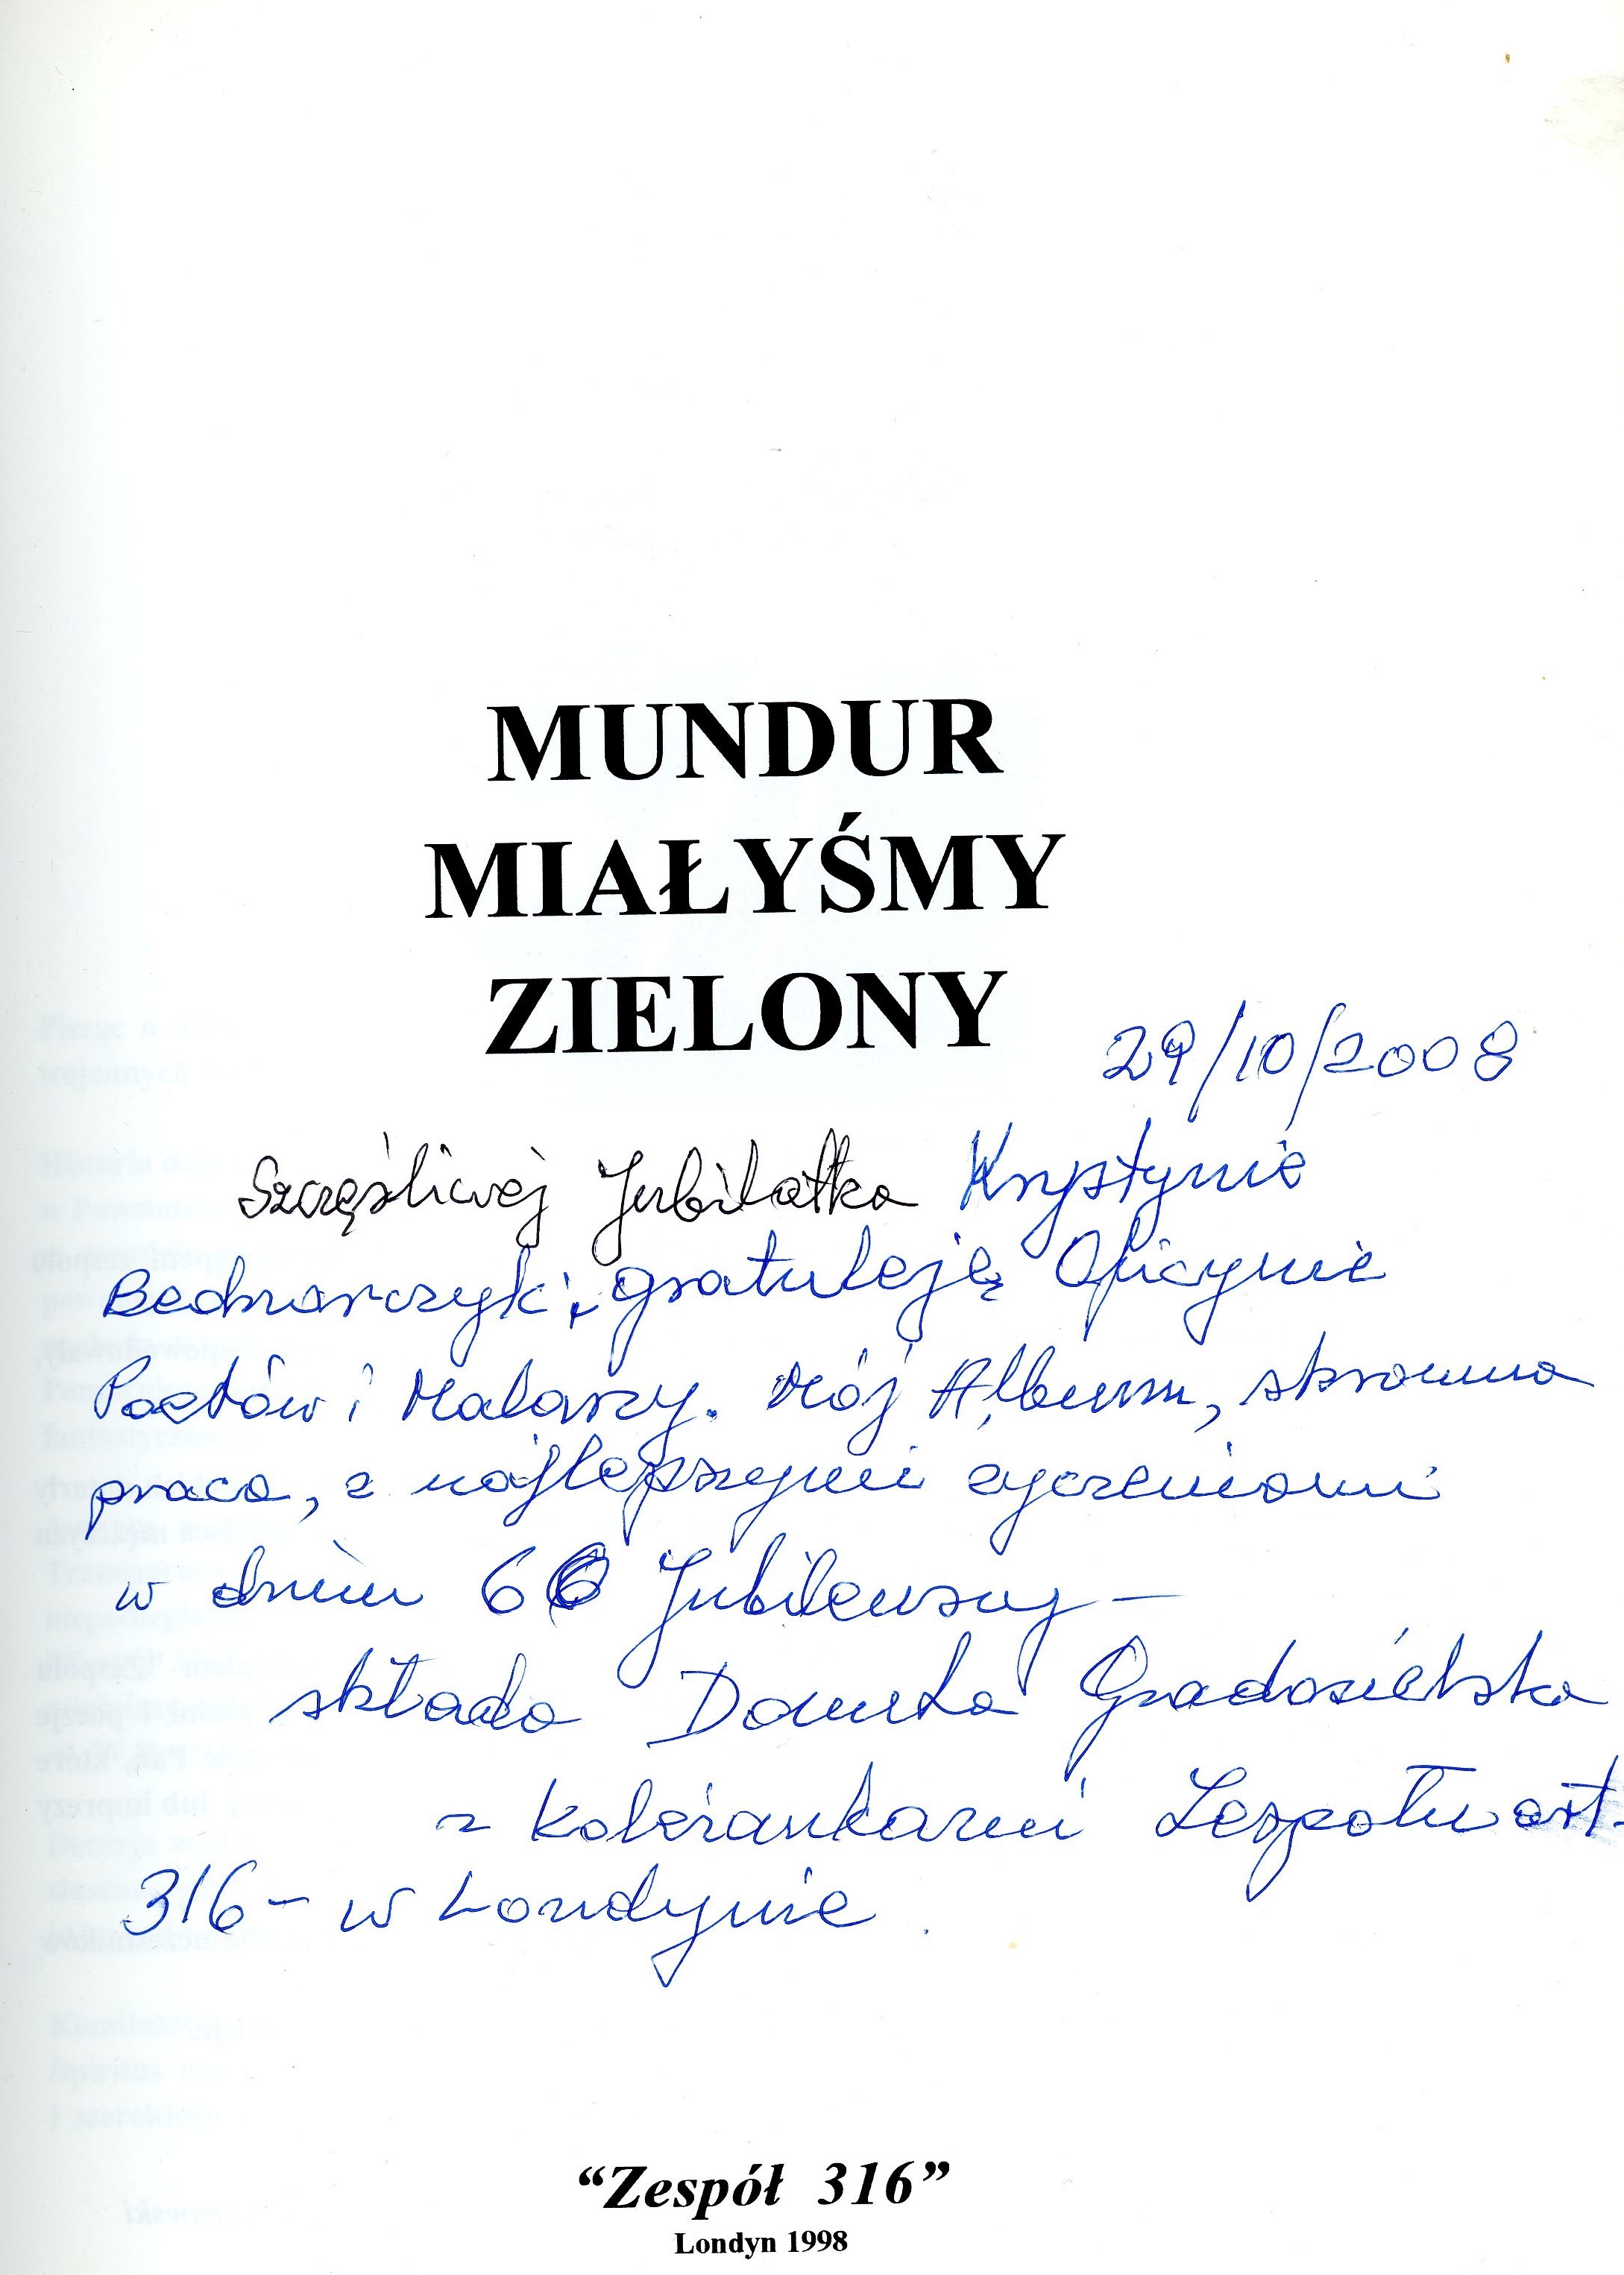 MUNDUR
MIAŁYŚMY
ZIELONY
29/10/2008
Szczęśliwej Jubilatka Krystynie
Bednarczyk; gratuleję Oficynie
Poetów i Malarzy. Mój Album, skromna
praca, z najlepszymi zyczeniami
w dniu 60 Jubileuszuy –
składa Danuta Gradosielska
z koleżankami Zespołu art.
316 – w Londynie.
“Zespół 316”
Londyn 1998